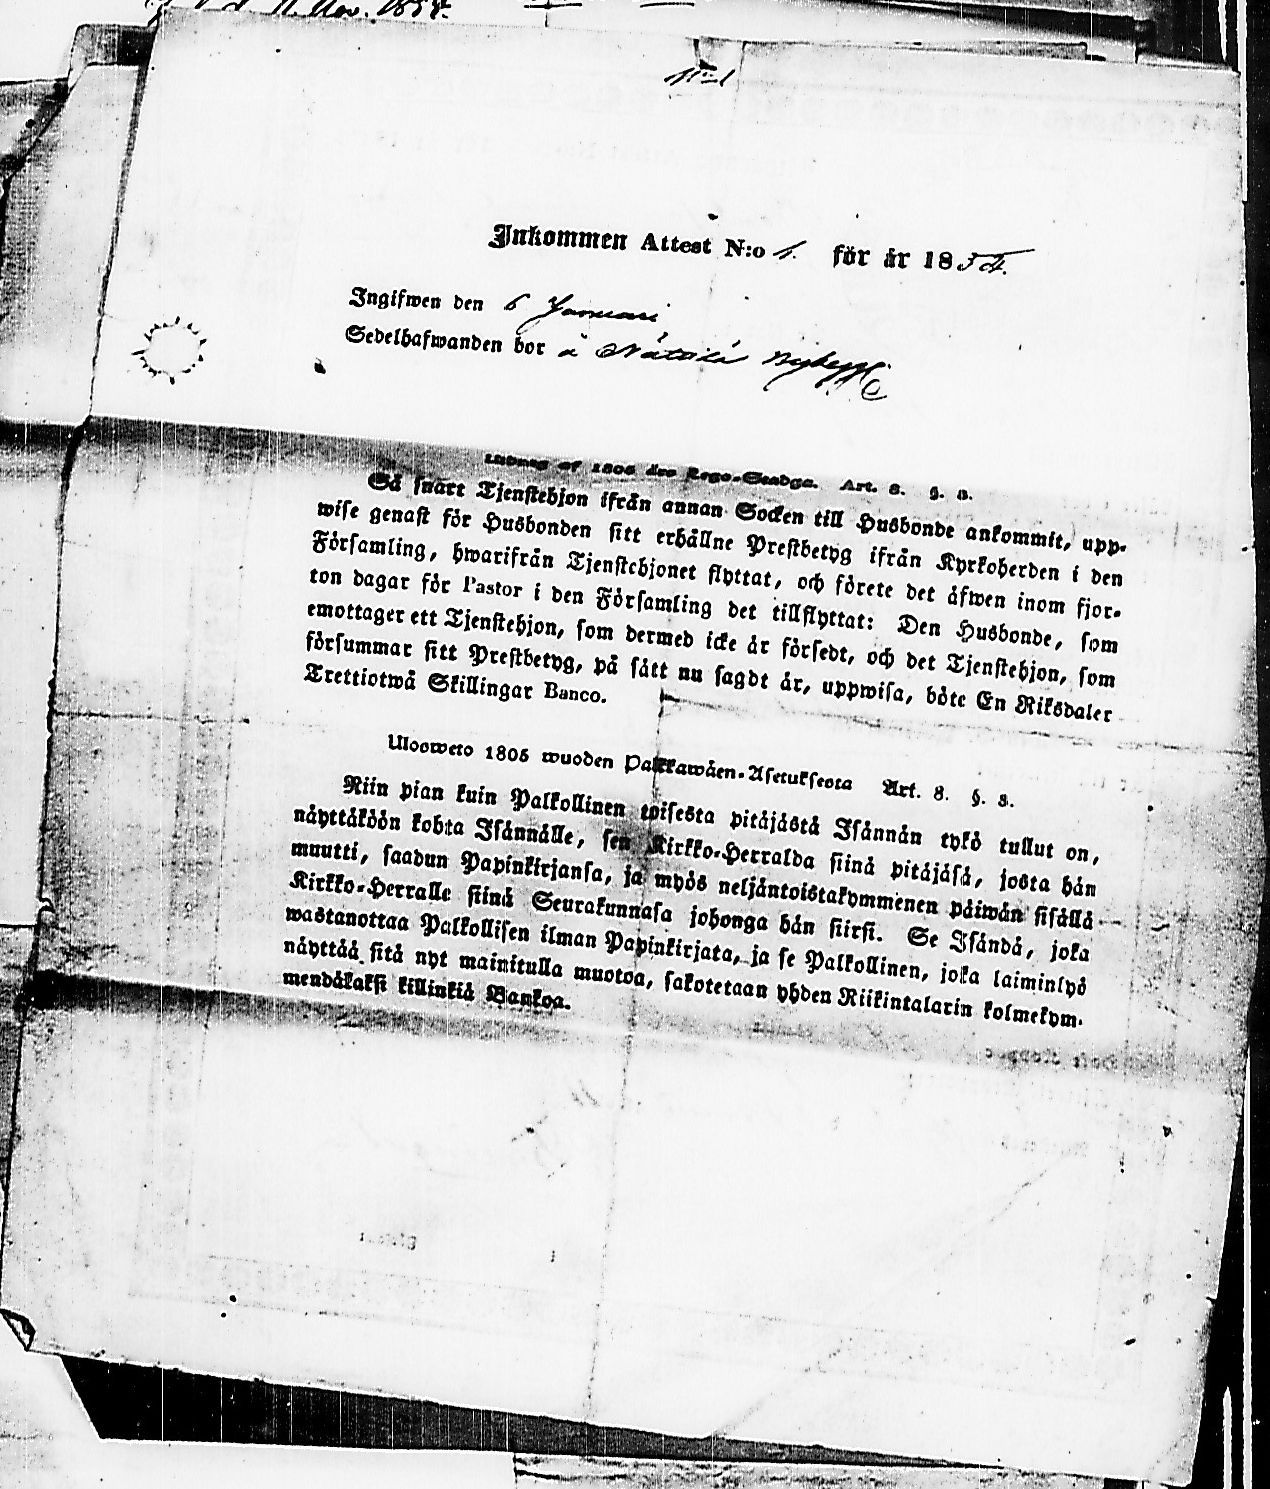 11 Nov. 1854.
N:o 1
Inkommen Attest N:o 1. för år 1854.
Ingifwen den 6 Januari
Sedelhafwanden bor å
Utdrag af 1805 års Lego-Stadga. Art. 8. §. 8.
Så snart Tjenstehjon ifrån annan Socken till Husbonde ankommit, upp-
wise genast för Husbonden sitt erhållne Prestbetyg ifrån Kyrkoherden i den
Församling, hwarifrån Tjenstehjonet flyttat, och förete det äfwen inom fjor-
ton dagar för Pastor i den Församling det tillflyttat: Den Husbonde, som
emottager ett Tjenstehjon, som dermed icke är försedt, och det Tjenstehjon, som
försummar sitt Prestbetyg, på sätt nu sagdt är, uppwisa, böte En Riksdaler
Trettiotwå Skillingar Banco.
Uloosweto 1805 wuoden Palkkawäen-Asetuksesta Art. 8. §. 8.
Niin pian kuin Palkollinen toisesta pitäjästä Isännän tykö tullut on,
näyttäköön kohta Isännälle, sen Kirkko-Herralda siinä pitäjäsä, josta hän
muutti, saadun Papinkirjansa, ja myös neljäntoistakymmenen päiwän sisällä
Kirkko-Herralle siinä Seurakunnasa johonga hän siirsi. Se Isändä, joka
wastanottaa Palkollisen ilman Papinkirjata, ja se Palkollinen, joka laiminlyö
näyttää sitä nyt mainitulla muotoa, sakotetaan yhden Riikintalarin kolmekym-
mendäkaksi killinkiä Bankoa.